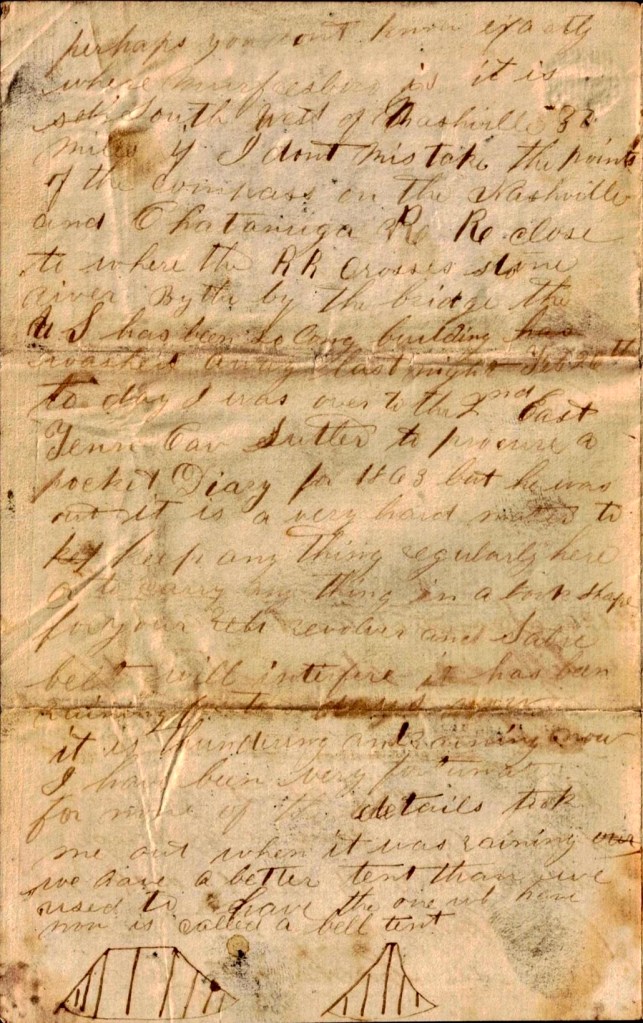 perhaps you dont know exactly
where murfresboro is it is
South West of Nashville 32
miles if I dont mistake the points
of the compass on the Nashville
and Chatanuga R R close
to where the RR Crosses stone
river by the by the bridge the
U S has been so long building has
washed away last night Feb 26th
to day I was over to the 2nd East
Tenn Cav Sutler to procure a
pocket Diary for 1863 but he was
out it is a very hard matter to
keep any thing regularly here
or to carry any thing in a book shape
for your revolver and Sabre
belt will interfere it has been
raining for days
it is thundering and raining now
I have been very fortunate
for none of the details took
me out when it was raining
we have a better tent than we
used to have the one we have
now is called a bell tent